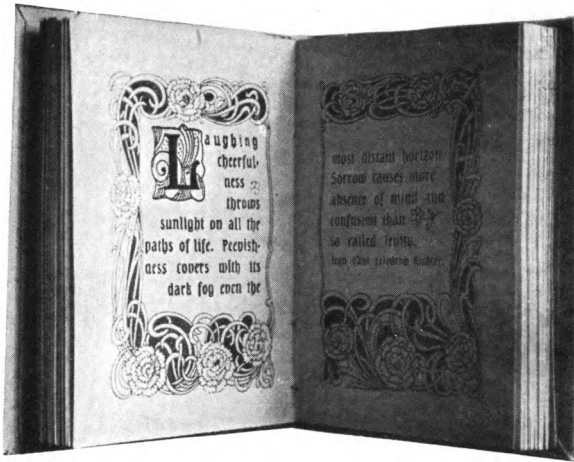 Laughing
cheerful-
ness
throws
sunlight on all the
paths of life. Peevish-
ness covers with its
dark fog even the
most distant horizon.
Sorrow causes more
absence of mind and
confusion than
so called levity.
Jean Paul Friedrich Richter.